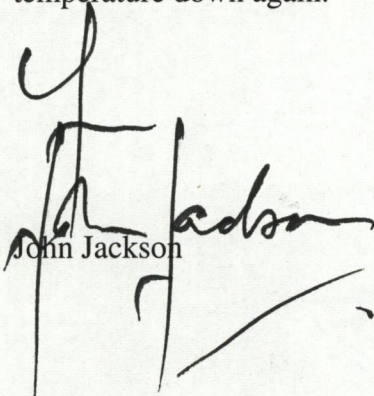 temperature down again.
John Jackson
John Jackson